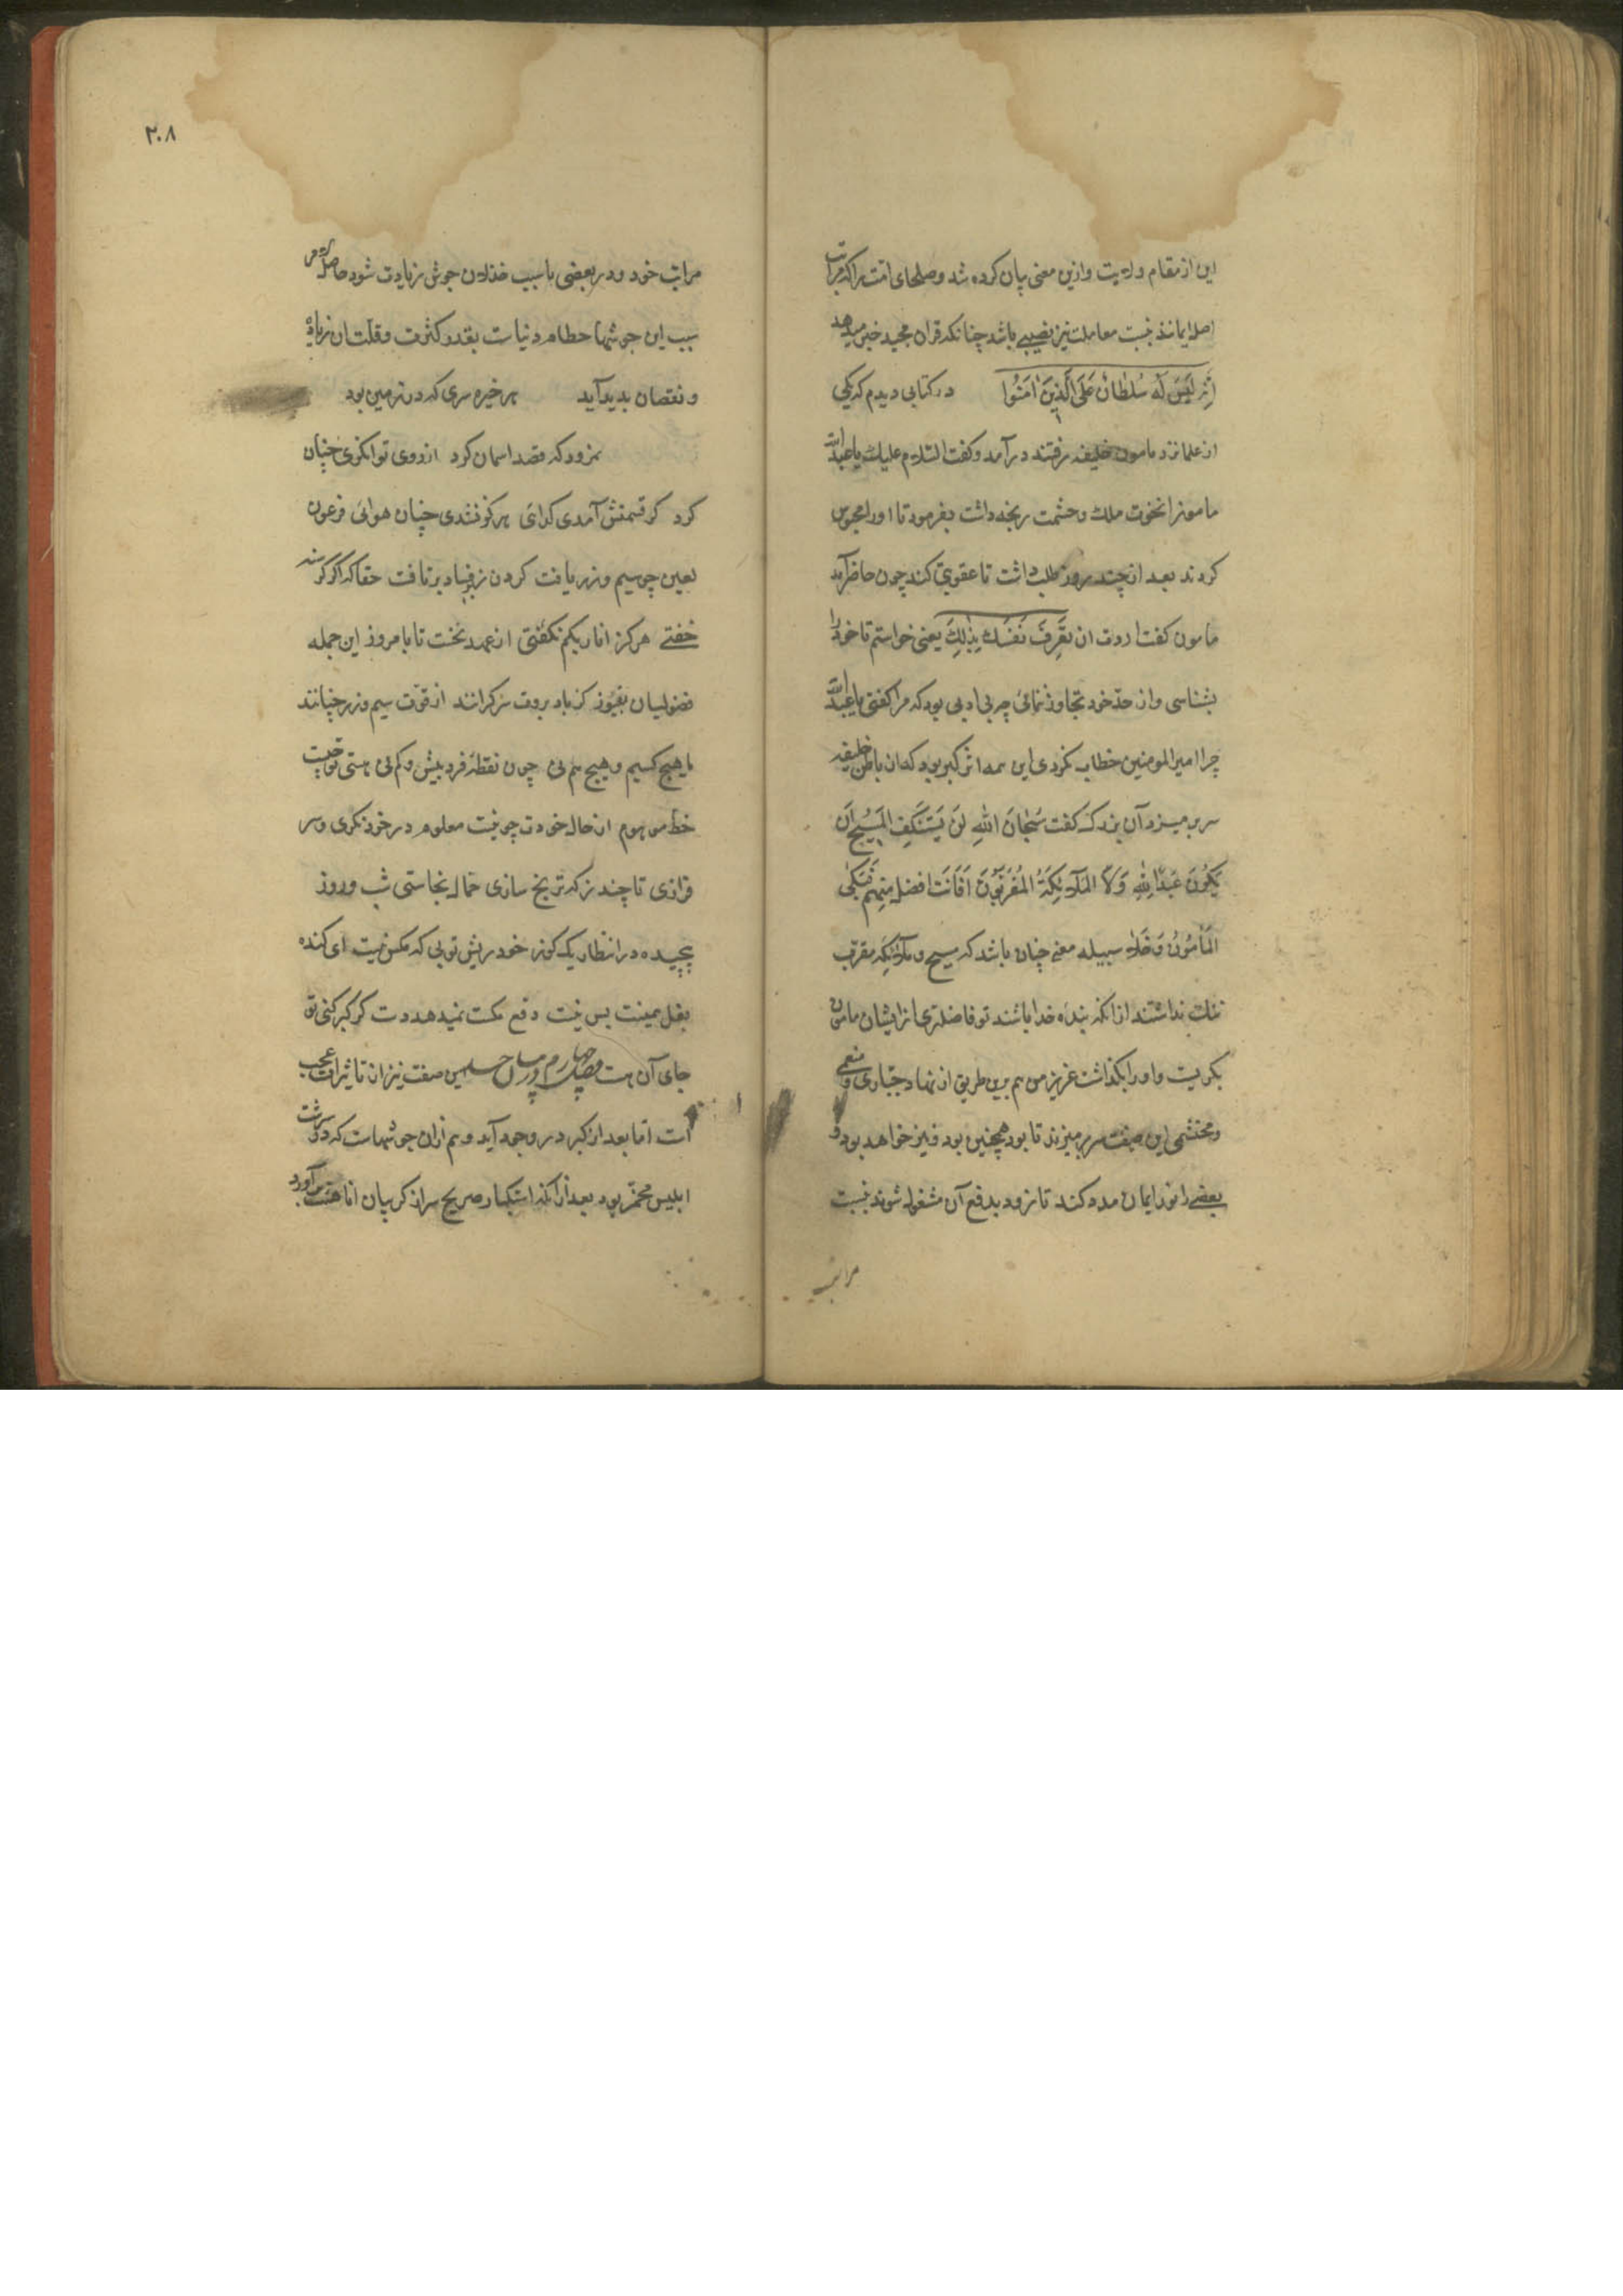 این از مقام ولایت و ازین معنی بیان کرده شد و صلحای امت را که مراتب
اصل ایمانند نسبت معاملت نیز نصیبی باشد چنانکه قران مجید خبر میدهد
اِنَّه لَیسَ لَهُ سُلطَانٌ عَلَی الَّذِینَ اٰمَنُوا در کتابی دیدم که یکی
از علما نزد مامون خلیفه رفتند درآمد و کفت السّلام علیک یا عبدالله
مامونرا نخوت ملک و حشمت رنجه داشت بفرمود تا اورا محبوس
کردند بعد از چند روز طلب داشت تا عقوبتی کند چون حاضر آمد
مامون کفت اردت ان تَعرِفَ نَفسَکَ بِذٰلِکَ یعنی خواستم تا خود را
بشناسی و از حدّ خود تجاوز ننمائی چه بی ادبی بود که مرا کفتی یا عبدالله
چرا امیر المومنین خطاب نکردی این همه اثر کبر بود که از باطن خلیفه
سر برمیزد آن بزرک کفت سُبحانَ اللهِ لَن یَستَنکِفَ المَسِیحُ اَن
یَکُونَ عَبدًا لِلّٰهِ وَلَا المَلٰٓئِکَةُ المُقَرَّبُونَ اَفَاَنتَ افضل مِنهُم فَبَکٰی
المَأمُونُ وَخَلّاٰ سبیله معنی چنان باشد که مسیح و ملائکه مقرب
ننک نداشتند از انکه بنده خدا باشند تو فاضلتری از ایشان مامون
بکریست و اورا بکذاشت عزیز من هم برین طریق از نهاد جبّاری و منعمی
و محتشمی این صفت سر برمیزند تا بود همچنین بود و نیز خواهد بود و
بعضی را نور ایمان مدد کند تا زود بدفع آن مشغول شوند نسبت
مراتب
۲۰۸
مراتب خود و در بعضی با سبب خذلان جوش زیادت شود حاصل
سبب این جوشها حطام دنیاست بقدر کثرت و قلّت ان زیاده
و نقصان بدید آید هر خیره سری که در زمین بود
نمرود که قصد اسمان کرد از روی توانکری چنان
کرد کر قسمتش آمدی کدائی هر کز نزدی چنان هوائی فرعون
لعین چو سیم و زر یافت کردن ز فساد برتافت حقا که اکر کرسنه
خُفتی هرکز انا ربکم نکفتی از عهد نخست تا بامروز این جمله
فضولیان که باد بروت سرکرانند از قوّت سیم و زر چنانند
ما هیچ کسیم و هیچ هم نی چون نقطهٔ فرد بیش و کم نی هستی تو چیست
خط موهوم از حال خودت چو نیست معلوم در خود نکری و سر
فرازی تا چند ز که ترنج سازی حمال نجاستی شب و روز
پیچیده در انتظار یک کوز خود ریش توبی که مکس نیست ای کنده
بغل همینت بس نیست دفع مکست نمیدهد دست کر کبر کنی تو
جای آن هست فصل چهارم در بیان صفت نیز از تاثیرات عجب
است اما بعد از کبر در وجود آید و هم ازان جوشهاست که در سرشت
ابلیس مخمّر بود بعد از انکه استکبار صریح سر از کریبان انا